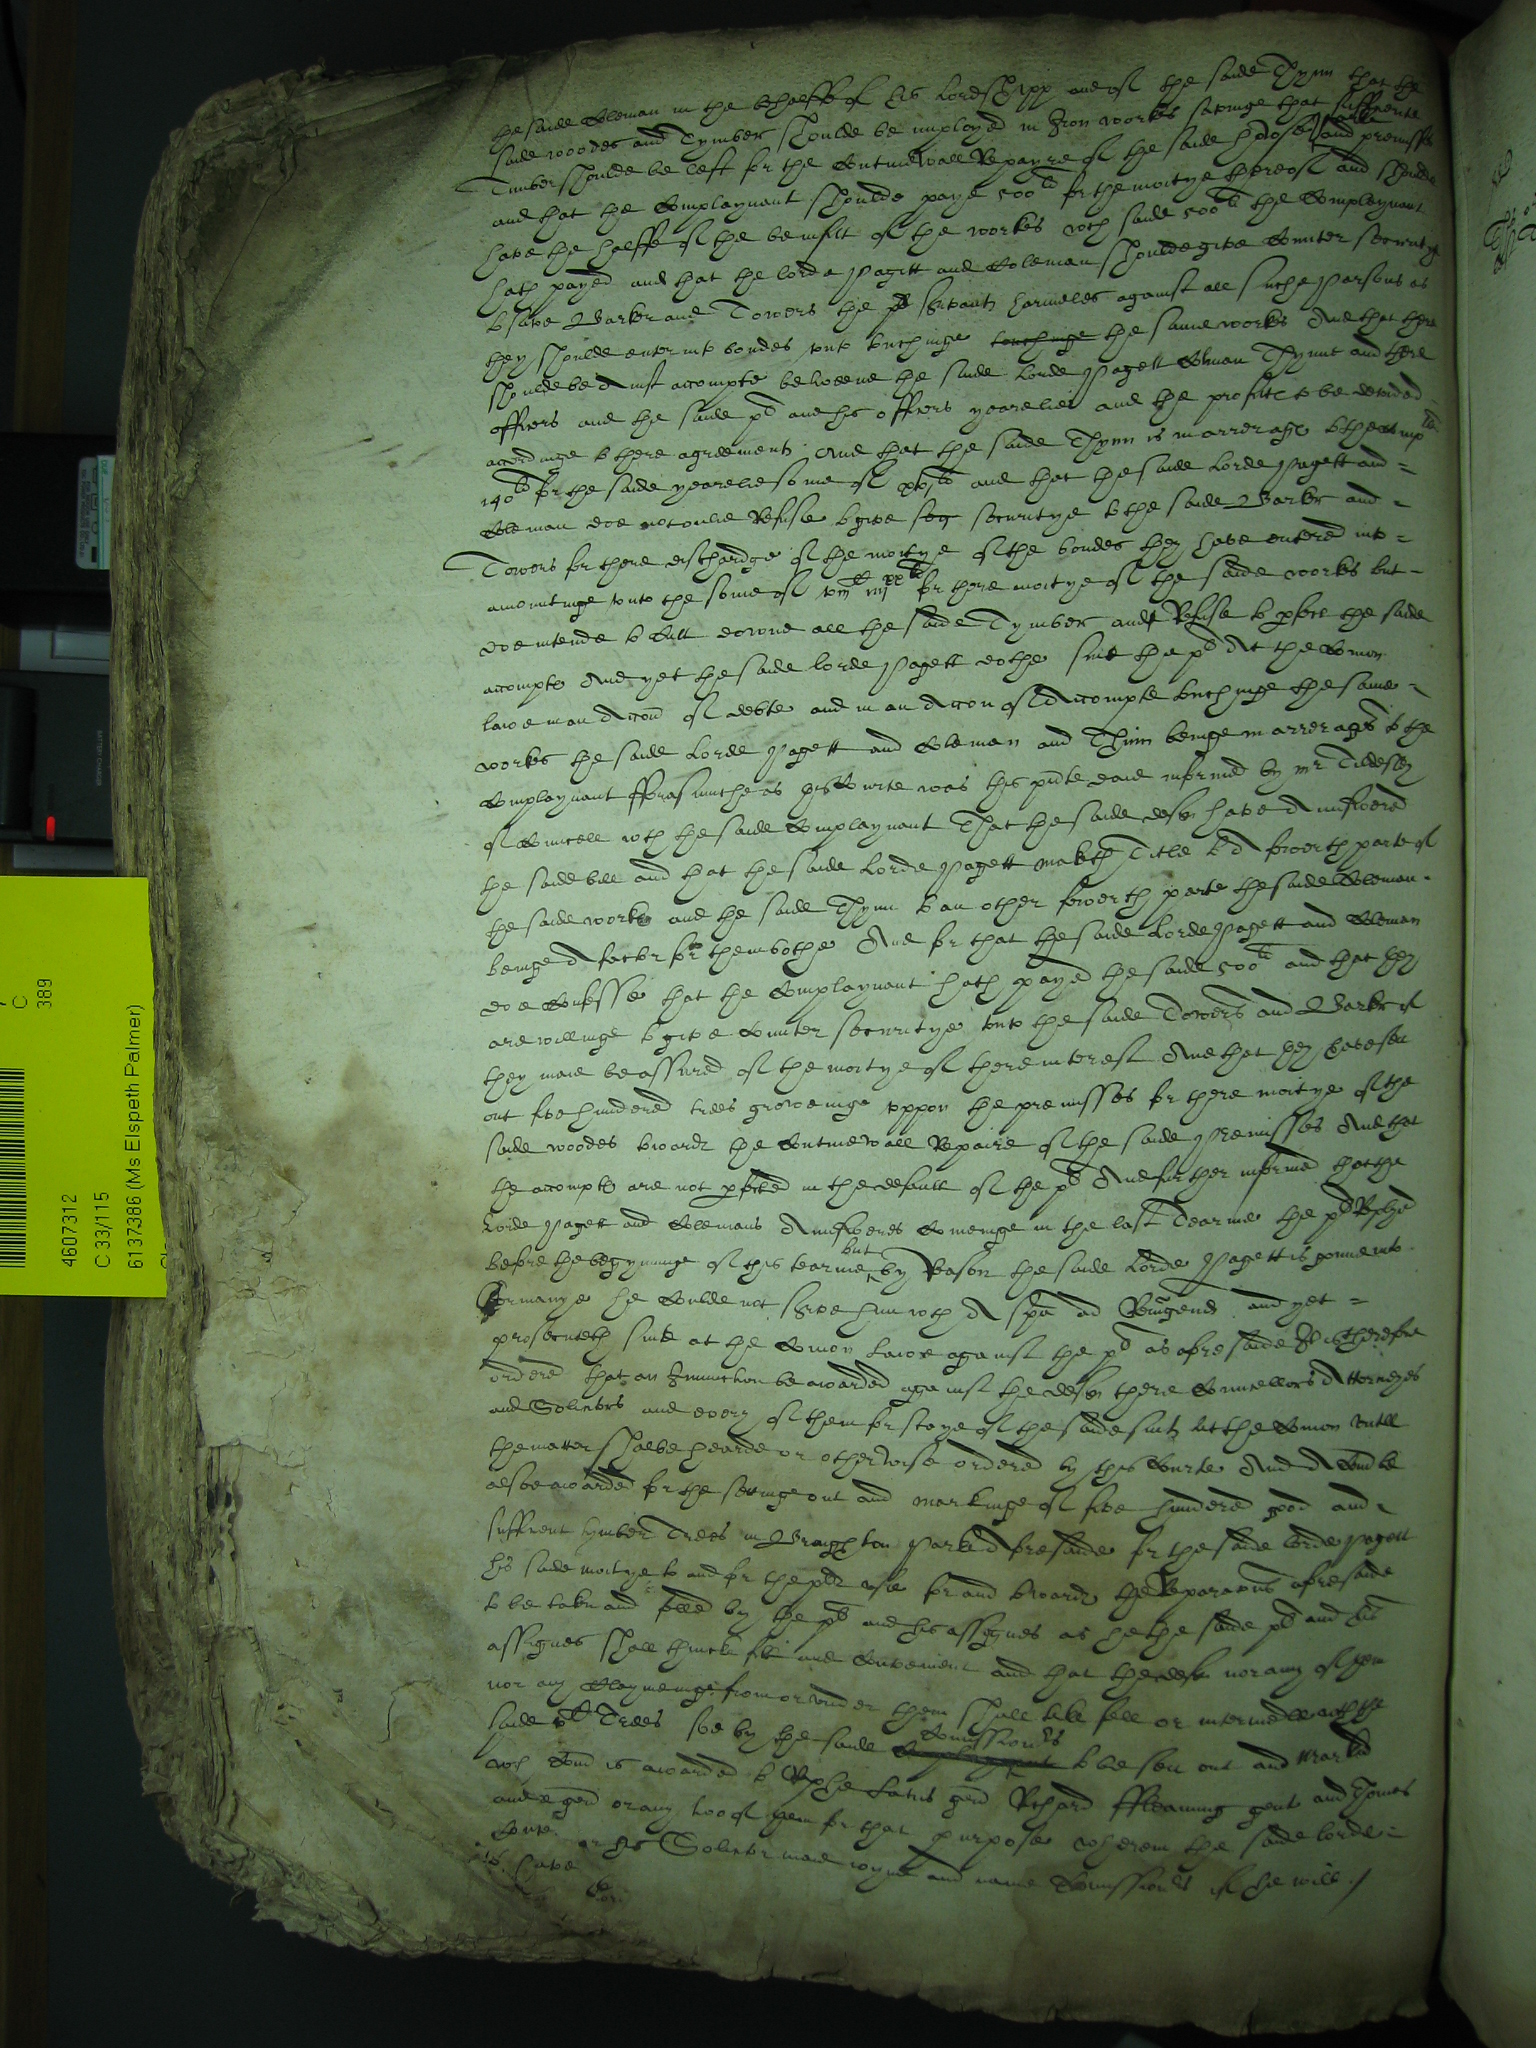 the saide Coleman in the behalffe of his Lordshipp and of the saide Thynn that the
saide woodes and Tymber shoulde be imployed in Iron workes savinge that sufficiente
Timber shoulde be left for the Contynewall Repayre of the saide howse parke and premisses
and that the Complaynant shoulde paye 500li for the moitye thereof and shoulde
have the halffe of the benifitt of the workes wch saide 500li the Complaynant
hath payed and that the lorde Pagett and Coleman shoulde give Counter securitye
to save Barker and Towers the pl servants harmeles against all suche Parsons as
they shoulde enter into bondes unto touchinge touchinge the same workes And that there
shoulde be A just accompte betweene the saide Lorde Pagett Coleman Thynne and there
officers and the saide pl and his officers yearelie and the profitt to be devided
accordinge to there agreement And that the saide Thynn is in arrerage to the compl
140li for the saide yearelie some of and that the saide Lorde Pagett and
Coleman doe not onlie Refuse to give seg securitye to the saide Barker and
Towers for there dischardge of the moitye of the bondes they have entered into
amountinge unto the some of for there moitye of the saide workes but
doe intende to Cutt downe all the saide Tymber and Refuse to pfect the saide
accompte And yet the saide lorde Pagett dothe sue the pl At the Comon
lawe in an Accon of debte and in an Accon of Accompte touchinge the same
workes the saide Lorde Pagett and Coleman and Thinn beinge in arrerages to the
Complaynant fforasmuche as this Courte was this pnte daie informed by mr Tildesley
of Councell wth the saide Complaynant That the saide defts have Aunswered
the saide bill and that the saide Lorde Pagett maketh Title to A fowerth parte of
the saide workes and the saide Thynn to an other fowerth parte the saide Coleman
beinge A factor for them bothe And for that the saide Lorde Pagett and Coleman
doe Confesse that the Complaynant hath payed the saide 500li and that they
are willinge to give Counter securitye unto the saide Towers and Barker if
they maie be assured of the moitye of there interest And that they have sett
out five hundered trees groweinge uppon the premisses for there moitye of the
saide woodes towards the Contynewall Repaire of the saide Premisses And that
the accompts are not pfected in the default of the pl And further informed that the
Lorde Pagett and Colemans Aunsweres Comeinge in the last Tearme the pl Replyed
before the begynninge of this tearme but by Reason the saide Lorde Pagett is gonne into
Germanye he Coulde not serve him wth A spa ad Reiungend and yet
prosecuteth suite at the Comon Lawe against the pl as aforesaide It is therefore
ordered that an Iniunction be awarded against the defts there Councellors Attorneyes
and Solicitors and every of them for staye of the saide suits att the Comon untill
the matter shalbe hearde or otherwise ordered by this Courte And A Comd be
alsoe awarded for the settinge out and markinge of five hundered good and
sufficient tymber Trees in Braughton Parke Aforesaide for the saide Lorde Pagett
his saide moitye to and for the pls use for and towards the Reparacons aforesaide
to be taken and felled by the pl and his assignes as he the saide pl and his
assignes shall thincke fitt and Convenient and that the defts nor any of them
nor any Claymeinge from or under them shall take fell or intermedle with the
saide vc Trees soe by the saide Complaynant Comissioners to be sett out and marked
wch Comd is awarded to Raphe gent Richard ffleaming gent and Thomas
gent or any two of them for that purpose wherein the saide lorde
or his Solicitor maie ioyne and name Comissioners if he will /
4607312
C 33/115
61373386 (Ms Elspeth Palmer)
C
389